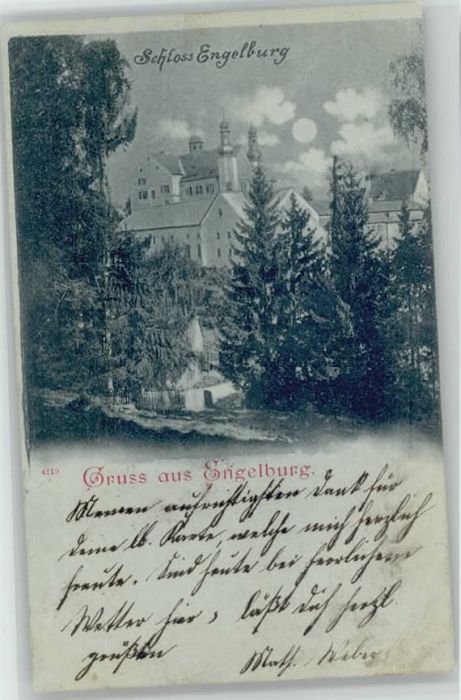 Schloss Engelburg
4219
Gruss aus Engelburg.
Meinen aufrichtigsten Dank für
deine lb. Karte, welche mich herzlich
freute. Sind heute bei herrlichem
Wetter hier, läßt dich herzl.
grüßen Math. Weber